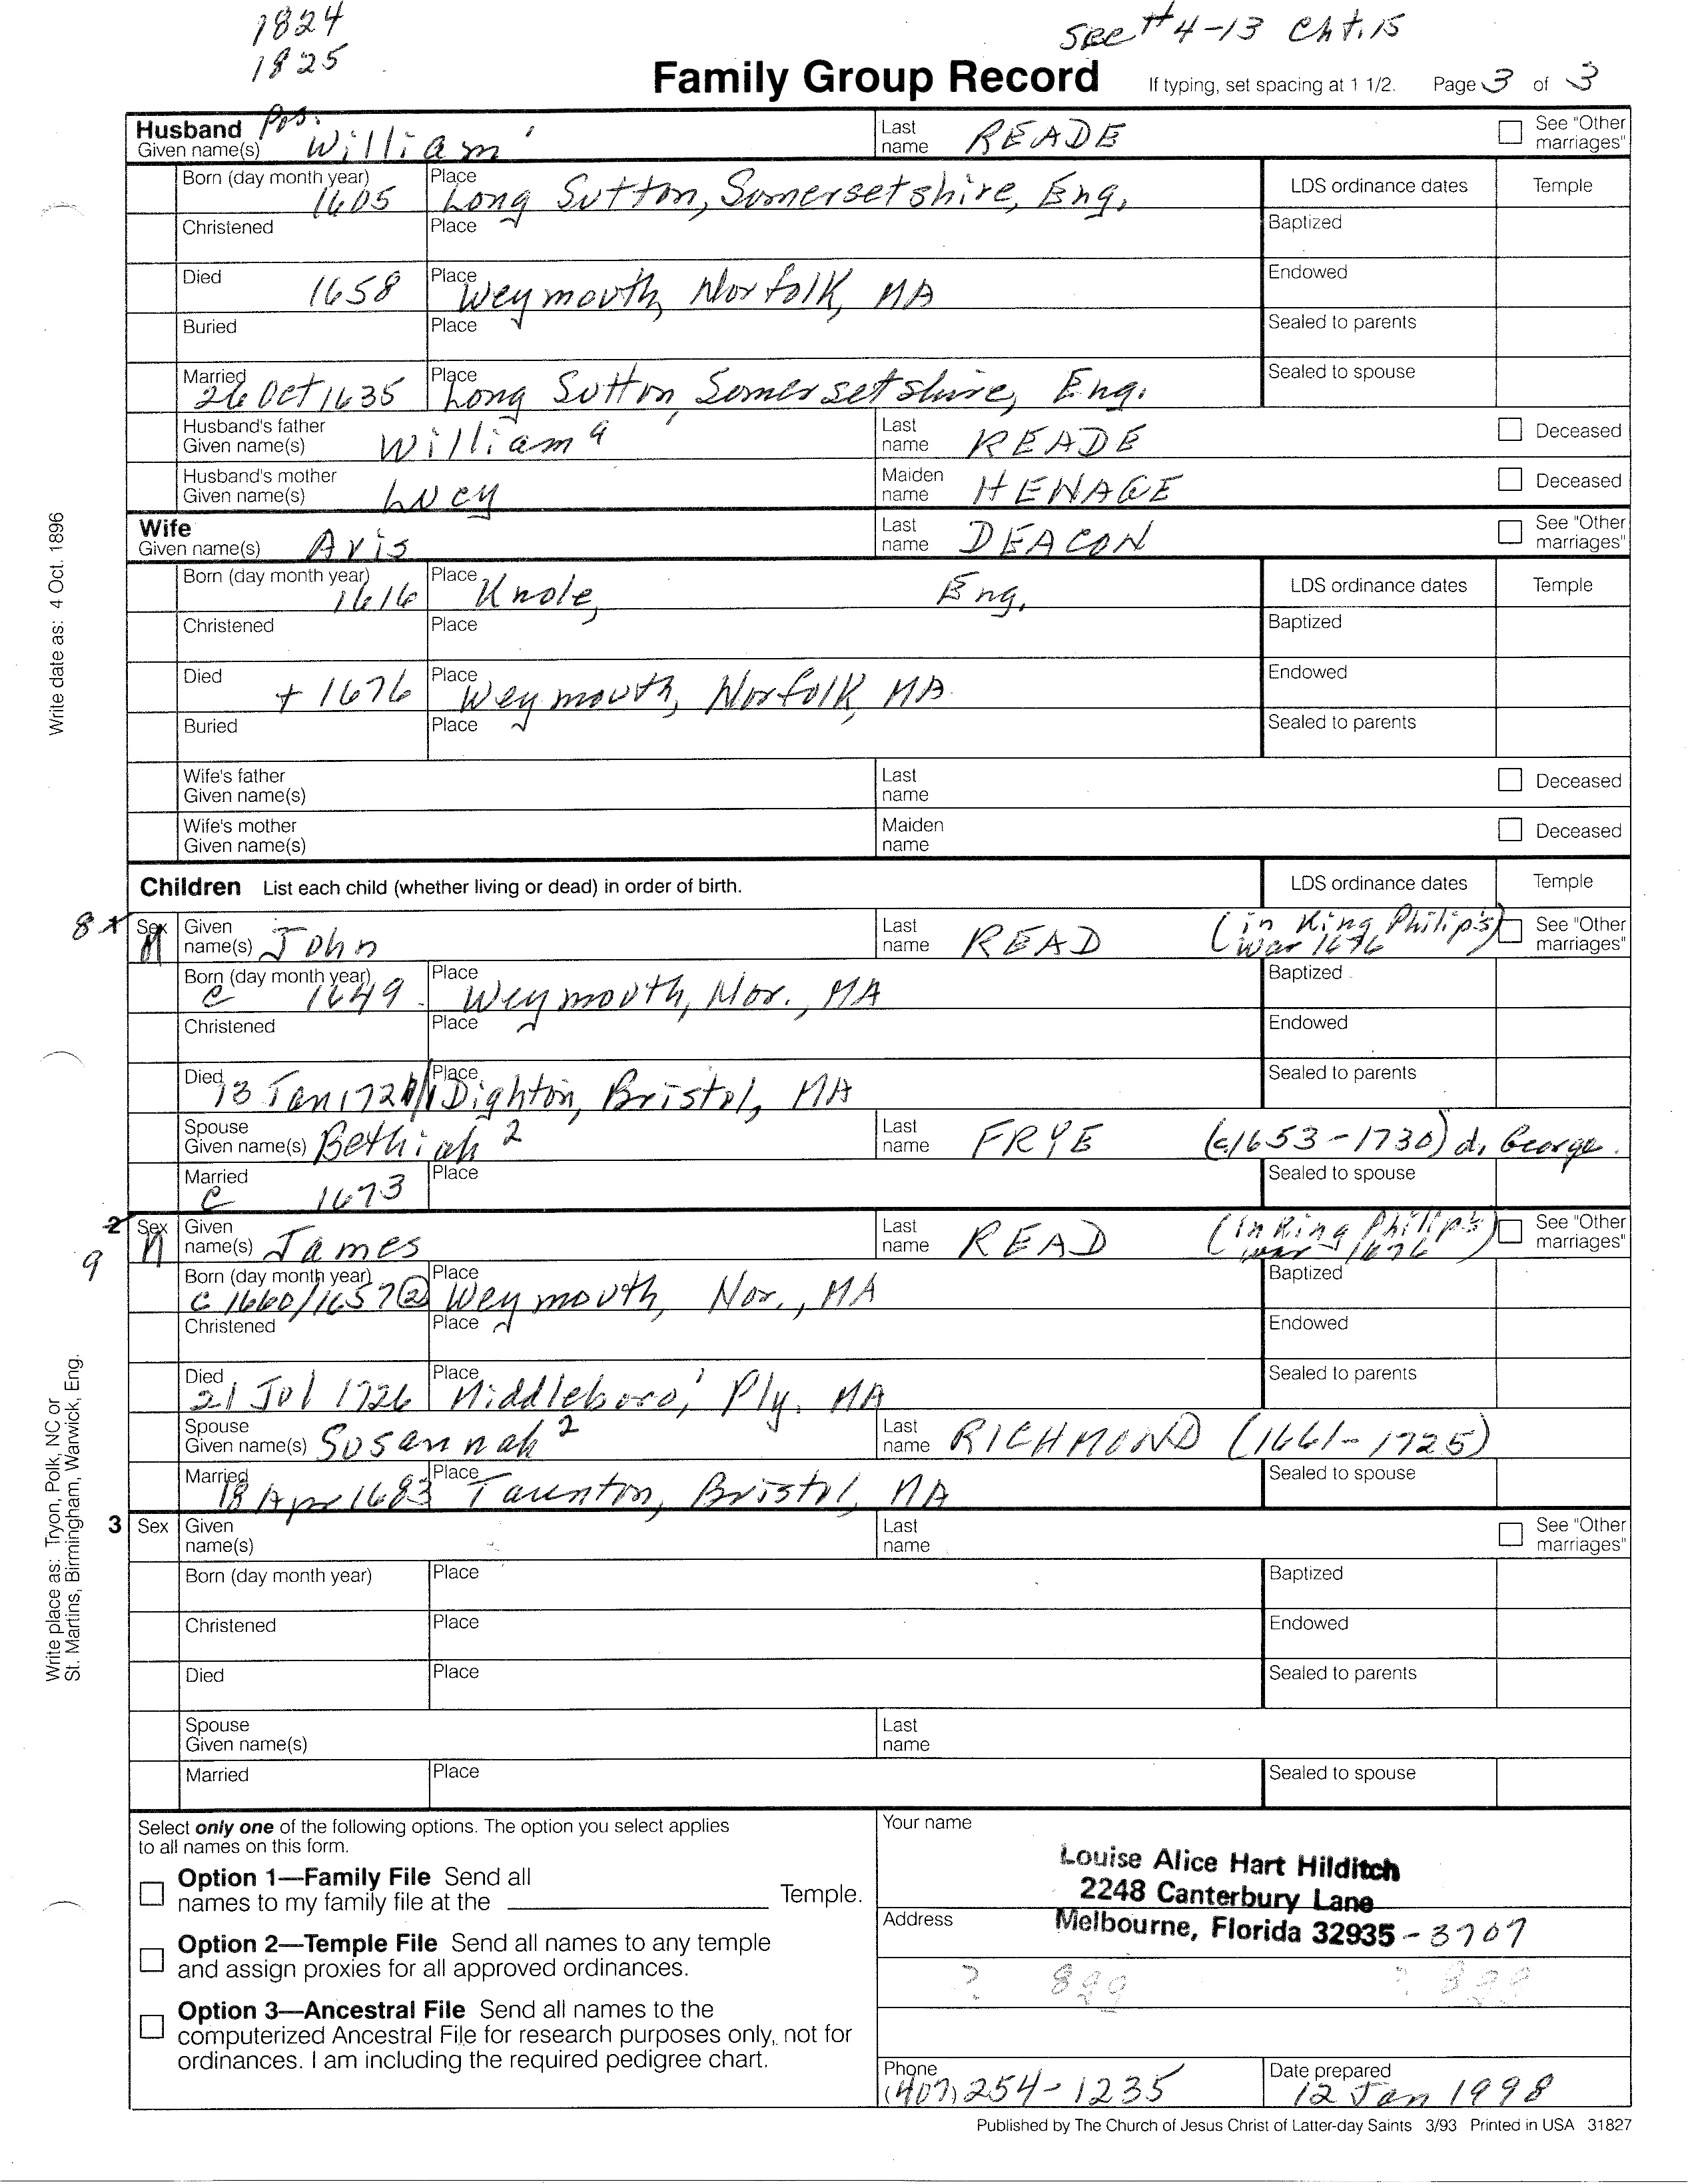 1824
1825
See # 4-13 Cht. 15
Family Group Record If typing, set spacing at 1 1/2. Page 3 of 3
Husband Pos.
Given name(s) William Last name READE See "Other marriages"
Born (day month year) 1605 Place Long Sutton, Somersetshire, Eng. LDS ordinance dates Temple
Christened Place Baptized
Died 1658 Place Weymouth, Norfolk, MA Endowed
Buried Place Sealed to parents
Married 26 Oct 1635 Place Long Sutton, Somersetshire, Eng. Sealed to spouse
Husband's father Given name(s) William Last name READE Deceased
Husband's mother Given name(s) Lucy Maiden name HENAGE Deceased
Wife
Given name(s) Avis Last name DEACON See "Other marriages"
Born (day month year) 1616 Place Knole, Eng. LDS ordinance dates Temple
Christened Place Baptized
Died + 1676 Place Weymouth, Norfolk, MA. Endowed
Buried Place Sealed to parents
Wife's father Given name(s) Last name Deceased
Wife's mother Given name(s) Maiden name Deceased
Children List each child (whether living or dead) in order of birth. LDS ordinance dates Temple
8 1 Sex M Given name(s) John Last name READ (in King Philip's War 1676) See "Other marriages"
Born (day month year) c 1649 Place Weymouth, Nor., MA Baptized
Christened Place Endowed
Died 13 Jan Place Dighton, Bristol, MA Sealed to parents
Spouse Given name(s) Bethiah 2 Last name FRYE (c1653-1730) d. George.
Married c 1673 Place Sealed to spouse
2 9 Sex M Given name(s) James Last name READ (in King Philip's war 1676) See "Other marriages"
Born (day month year) c 1660/1657 (2) Place Weymouth, Nor., MA Baptized
Christened Place Endowed
Died 21 Jul 1726 Place Middleboro, Ply. MA Sealed to parents
Spouse Given name(s) Susannah 2 Last name RICHMOND (1661-1725)
Married 18 Apr 1683 Place Taunton, Bristol, MA Sealed to spouse
3 Sex Given name(s) Last name See "Other marriages"
Born (day month year) Place Baptized
Christened Place Endowed
Died Place Sealed to parents
Spouse Given name(s) Last name
Married Place Sealed to spouse
Write date as: 4 Oct. 1896
Write place as: Tryon, Polk, NC or
St. Martins, Birmingham, Warwick, Eng.
Select only one of the following options. The option you select applies
to all names on this form.
Option 1—Family File Send all
names to my family file at the Temple.
Option 2—Temple File Send all names to any temple
and assign proxies for all approved ordinances.
Option 3—Ancestral File Send all names to the
computerized Ancestral File for research purposes only, not for
ordinances. I am including the required pedigree chart.
Your name
Louise Alice Hart Hilditch
2248 Canterbury Lane
Address Melbourne, Florida 32935 - 3707
Phone (407) 254-1235 Date prepared 12 Jan 1998
Published by The Church of Jesus Christ of Latter-day Saints 3/93 Printed in USA 31827